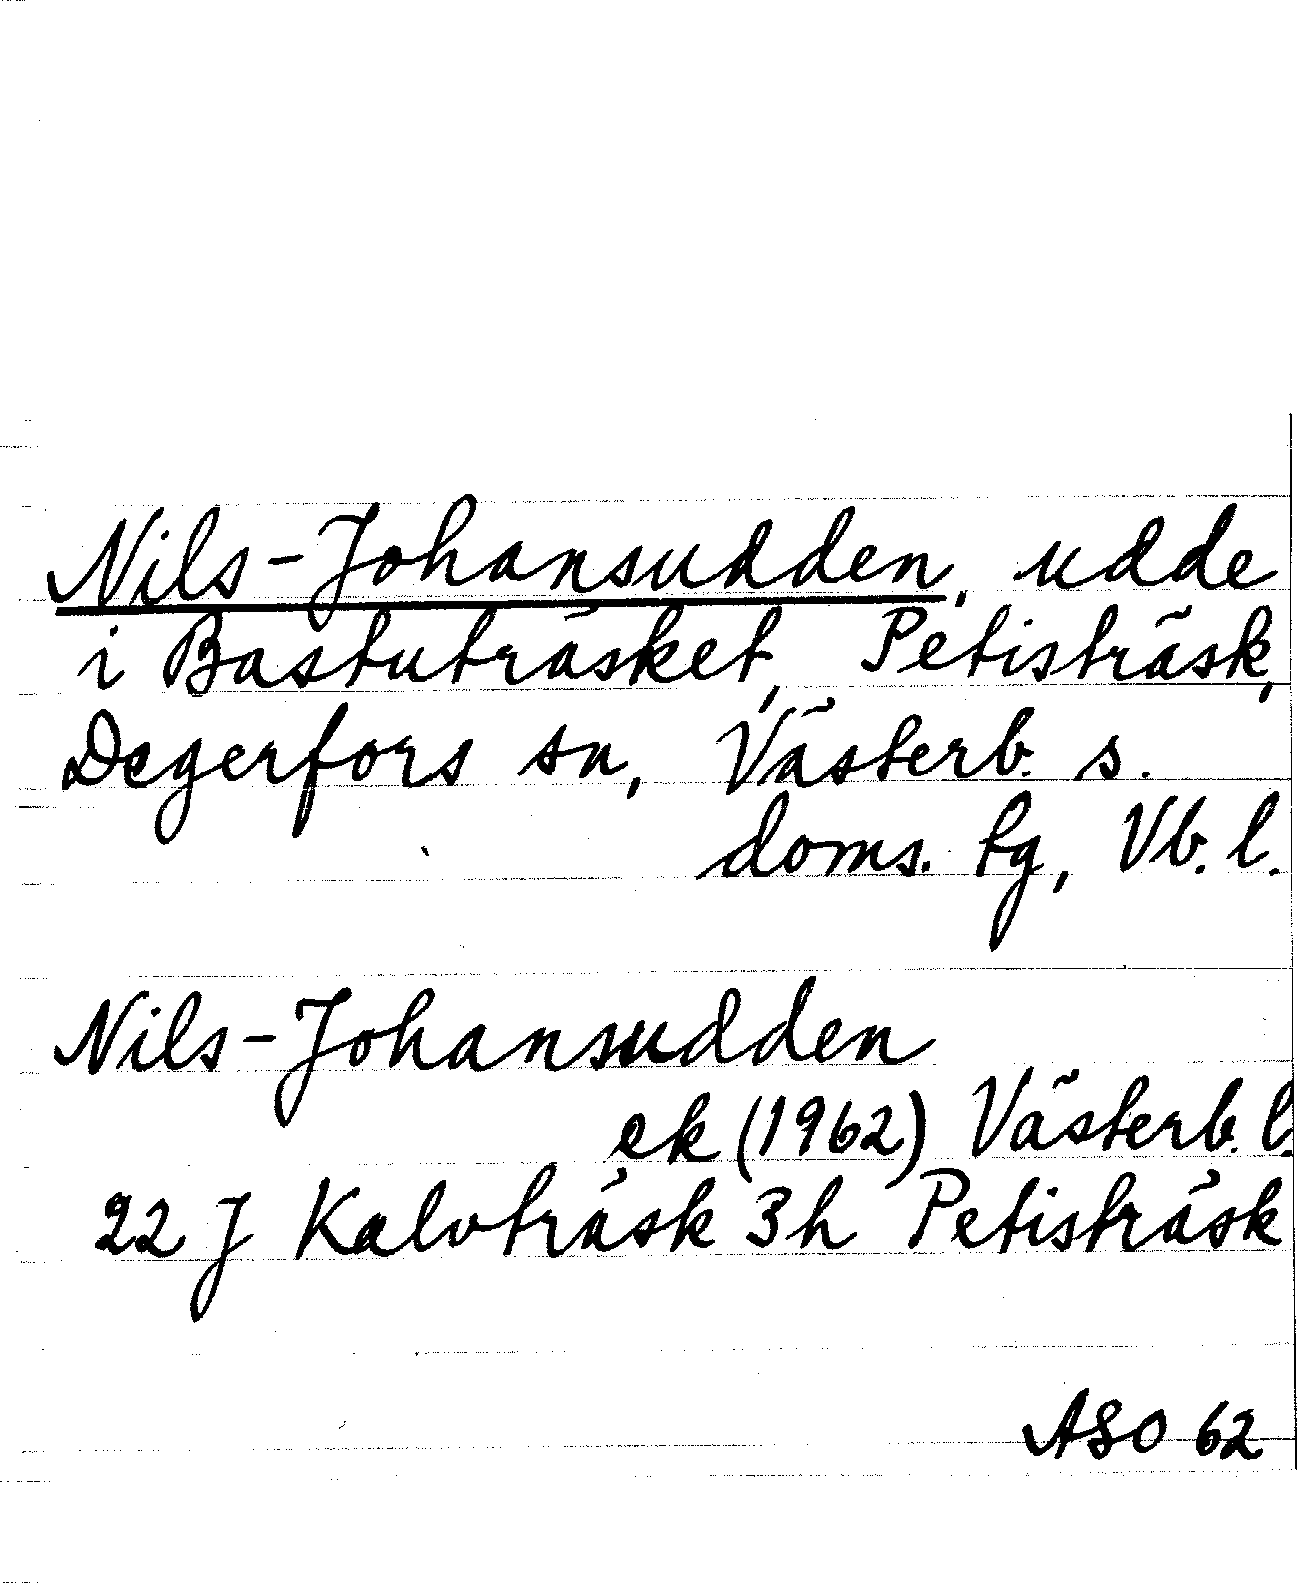 Nils-Johansudden, udde
i Bastuträsket, Petisträsk,
Degerfors sn, Västerb. s.
doms. tg, Vb. l.
Nils-Johansudden
ek (1962) Västerb. l.
22 J Kalvträsk 3h Petisträsk
ASO 62